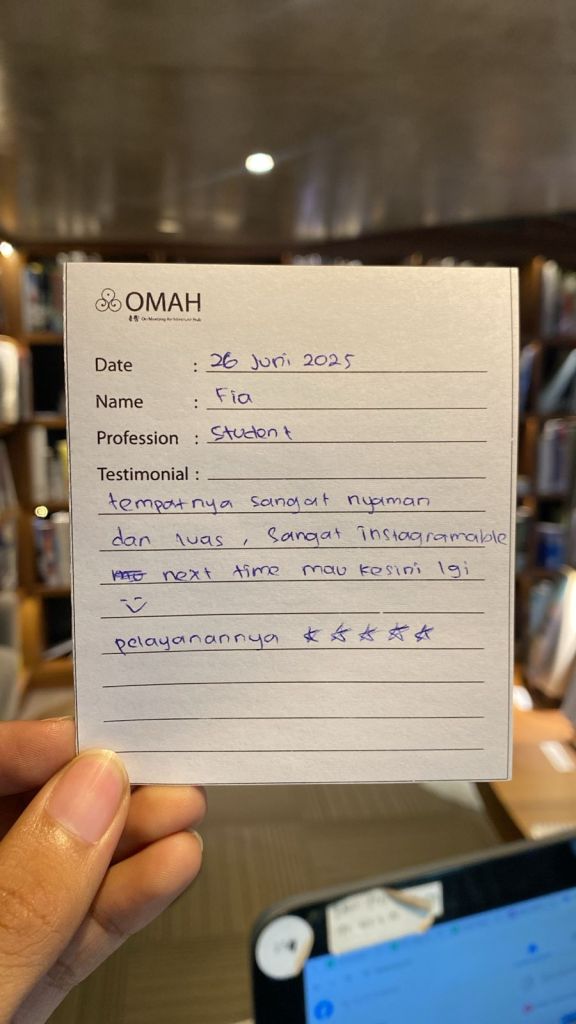 OMAH
Date : 26 Juni 2025
Name : Fia
Profession : Student
Testimonial :
tempatnya sangat nyaman
dan luas, sangat instagramable
next time mau kesini lgi
pelayanannya